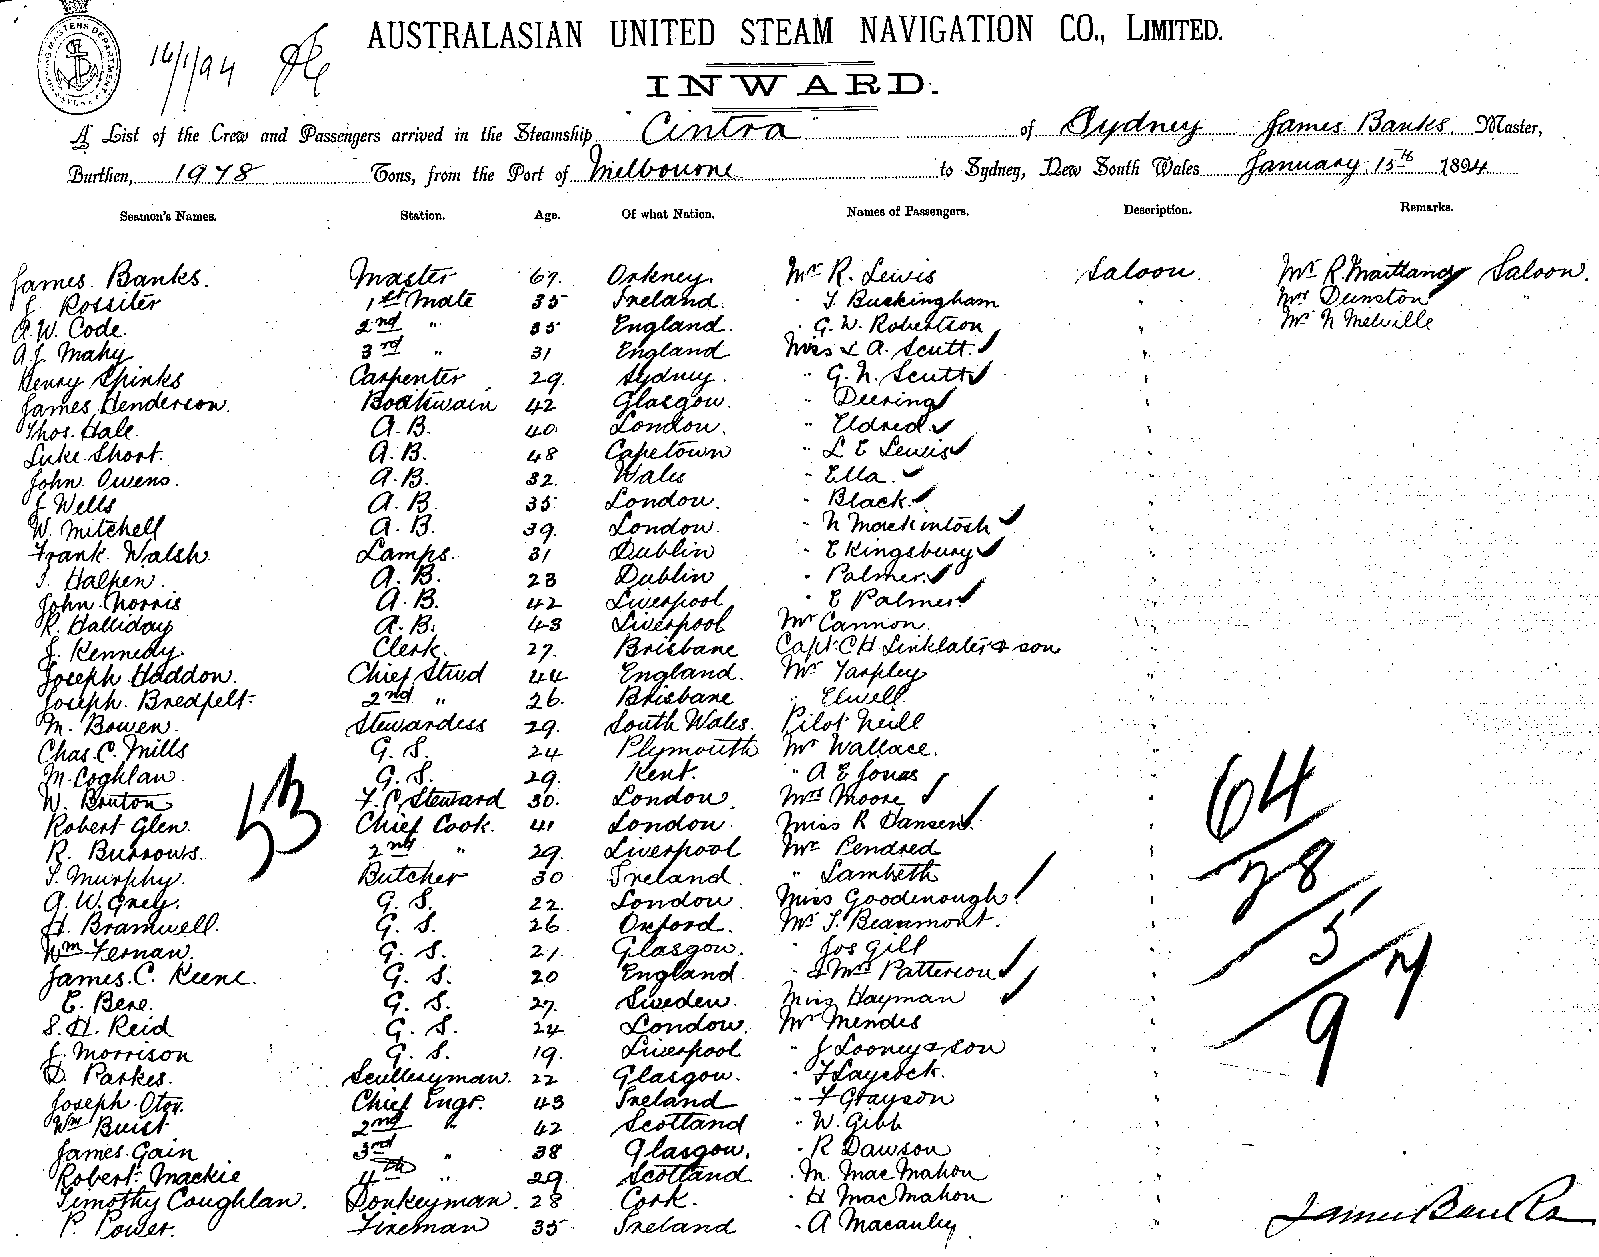 16/1/94
AUSTRALASIAN UNITED STEAM NAVIGATION CO., LIMITED.
INWARD.
A List of the Crew and Passengers arrived in the Steamship Cintra of Sydney James Banks Master,
Burthen, 1978 Tons, from the Port of Melbourne to Sydney, New South Wales January 15th 1894
Seamen's Names. Station. Age. Of what Nation. Names of Passengers. Description. Remarks.
James Banks. Master 67. Orkney. Mr R. Lewis Saloon. Mr R. Maitland Saloon.
J. Rossiter 1st Mate 35 Ireland. " T. Buckingham " Mrs Dunston "
A.W. Code. 2nd " 35 England. " G. W. Robertson " Mr N Melville
A.J. Mahy 3rd " 31 England Miss L A. Scutt. "
Henry Spinks Carpenter 29. Sydney. " G. N. Scutt "
James Henderson. Boatswain 42 Glasgow. " Deering "
Thos. Hale. A.B. 40. London. " Eldred "
Luke Short. A.B. 48 Capetown " L E Lewis "
John Owens. A.B. 32. Wales " Ella. "
J Wells A.B. 35 London. " Black. "
W. Mitchell A.B. 39. London. " N Mackintosh "
Frank Walsh Lamps. 31 Dublin " E Kingsbury "
T. Halpen. A.B. 23 Dublin " Palmer. "
John Norris A.B. 42 Liverpool " E Palmer. "
R. Halliday A.B. 43 Liverpool Mr Cannon. "
J. Kennedy. Clerk. 27. Brisbane Capt. C H Linklater & son "
Joseph Haddon. Chief Stwd 44 England. Mr Tarpley "
Joseph Bredfelt. 2nd " 26. Brisbane " Elwell "
M. Bowen. Stewardess 29. South Wales. Pilot Neill "
Chas. C. Mills G. S. 24 Plymouth Mr Wallace. "
M. Coghlan. G. S. 29. Kent. " A E Jonas "
W. Bruton F. C. Steward 30. London. Mrs Moore "
Robert Glen. Chief Cook. 41 London. Miss R Hansen. "
R. Burrows. 2nd " 29. Liverpool Mr Pendred "
T. Murphy. Butcher 30 Ireland. " Lambeth "
A. W. Grey. G. S. 22. London. Miss Goodenough. "
H. Bramwell. G. S. 26 Oxford. Mr T. Beaumont. "
Wm Fernan. G. S. 21 Glasgow. " Jos Gill "
James. C. Keene. G. S. 20 England. " & Mrs Patterson "
E. Bere. G. S. 27. Sweden. Miss Hayman "
S. H. Reid G. S. 24 London. Mr Mendes "
J. Morrison G. S. 19. Liverpool " J Looney & son "
D. Parkes. Sculleryman. 22 Glasgow. " F Laycock. "
Joseph Chief Engr. 43 Ireland " F Grayson "
Wm Buist 2nd " 42 Scotland " W. Gibb "
James Gain 3rd " 38 Glasgow. " R Dawson "
Robert Mackie 4th " 29. Scotland " M. MacMahon "
Timothy Coughlan. Donkeyman. 28 Cork. " H MacMahon "
P. Power. Fireman 35 Ireland " A Macauley "
53
64
28
5
97
James Banks